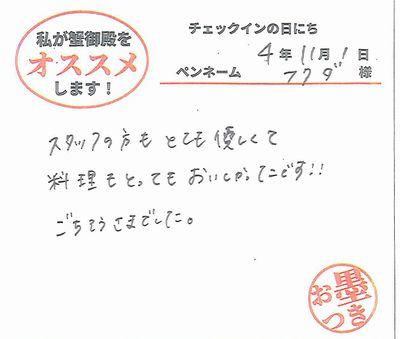 私が蟹御殿を
オススメ
します!
チェックインの日にち
4年11月1日
ペンネーム フクダ 様
スタッフの方もとても優しくて
料理もとってもおいしかったです!!
ごちそうさまでした。
お墨
つき